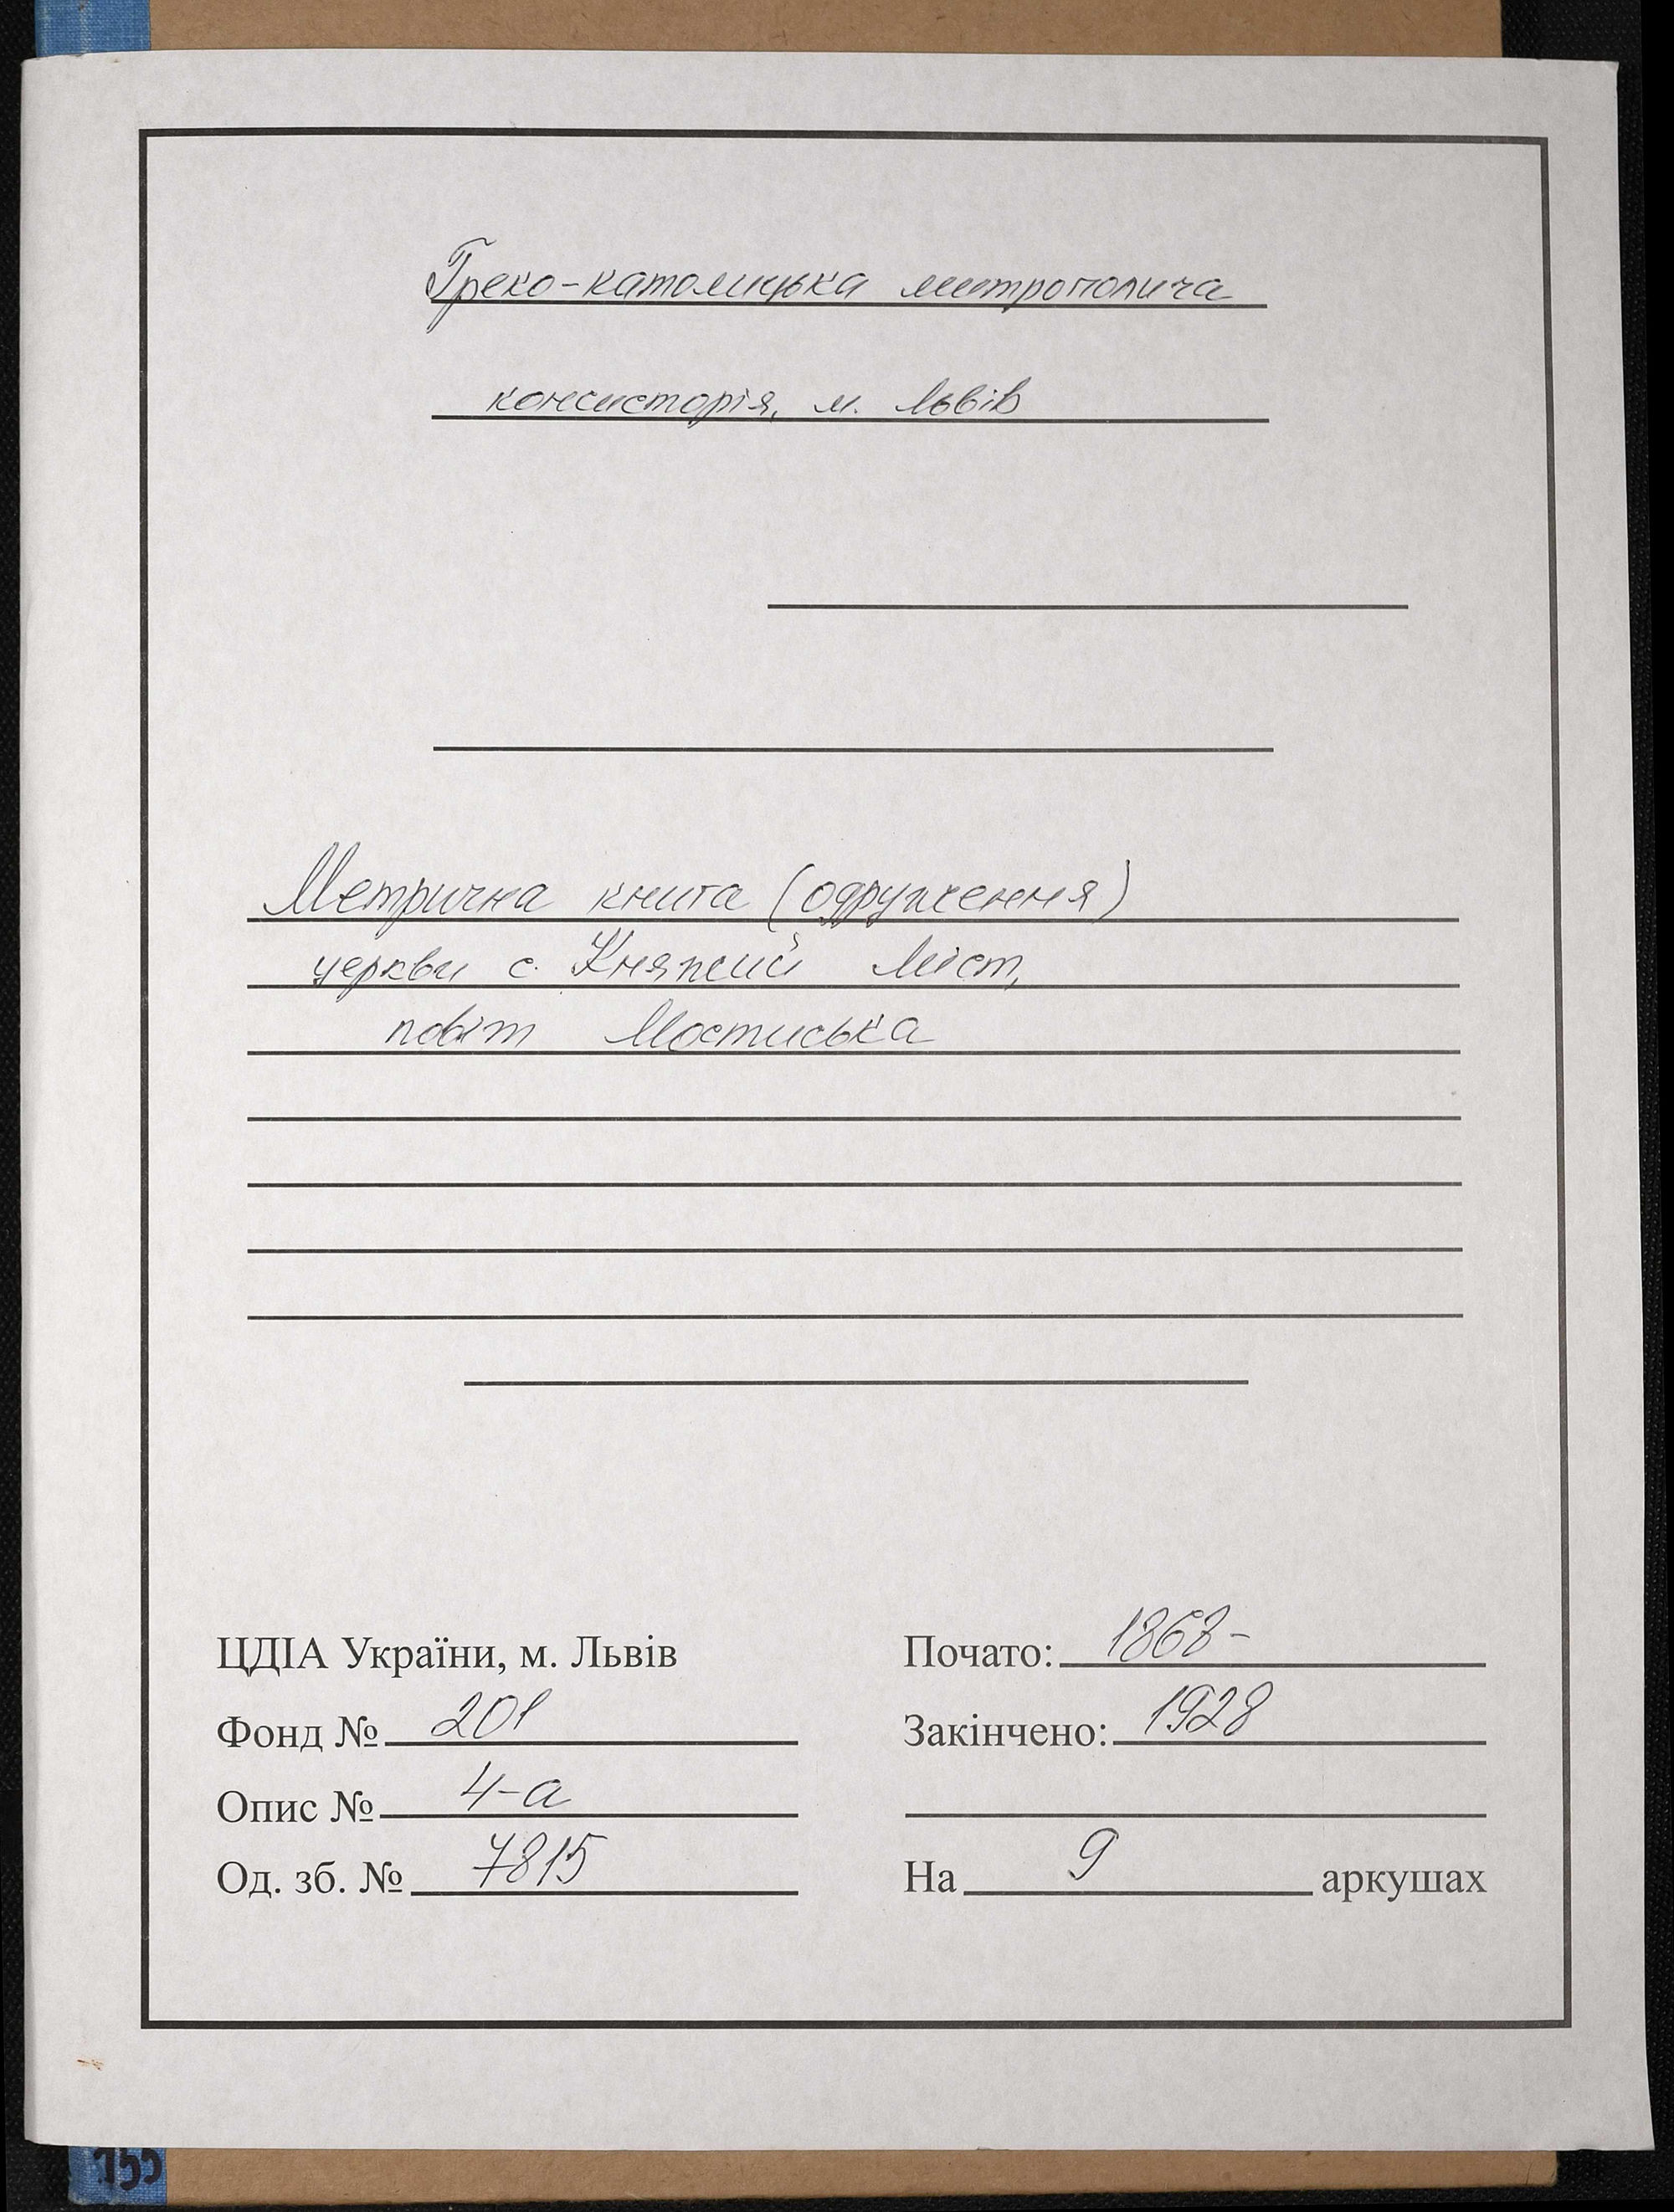 Греко-католицька митрополича
консисторія, м. Львів
Метрична книга (одруження)
церкви с. Княжий Міст,
повіт Мостиська
ЦДІА України, м. Львів
Фонд № 201
Опис № 4-а
Од. зб. № 7815
Почато: 1868-
Закінчено: 1928
На 9 аркушах
155